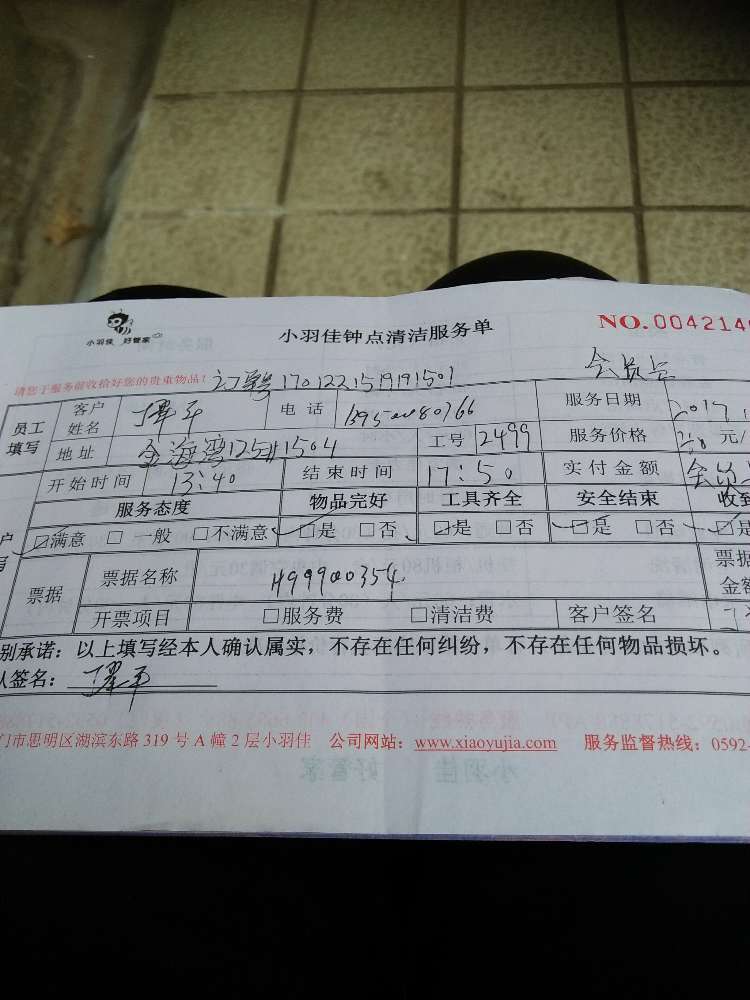 小羽佳 好管家
小羽佳钟点清洁服务单
NO.004214
请您于服务前收拾好您的贵重物品!
订单号 1701221519191501
会员卡
员工填写
客户姓名
电话
服务日期 2017
地址 金海湾125#1504
工号 2499
服务价格 元/
开始时间 13:40
结束时间 17:50
实付金额 会员
服务态度 物品完好 工具齐全 安全结束 收到
☑满意 □ 一般 □不满意 ☑是 □否 ☑是 □否 ☑是 □否 ☑是
票据
票据名称 H999000354
票据金额
开票项目 □服务费 □清洁费 客户签名
别承诺:以上填写经本人确认属实,不存在任何纠纷,不存在任何物品损坏。
人签名:
门市思明区湖滨东路 319 号 A 幢 2 层小羽佳 公司网站:www.xiaoyujia.com 服务监督热线:0592-